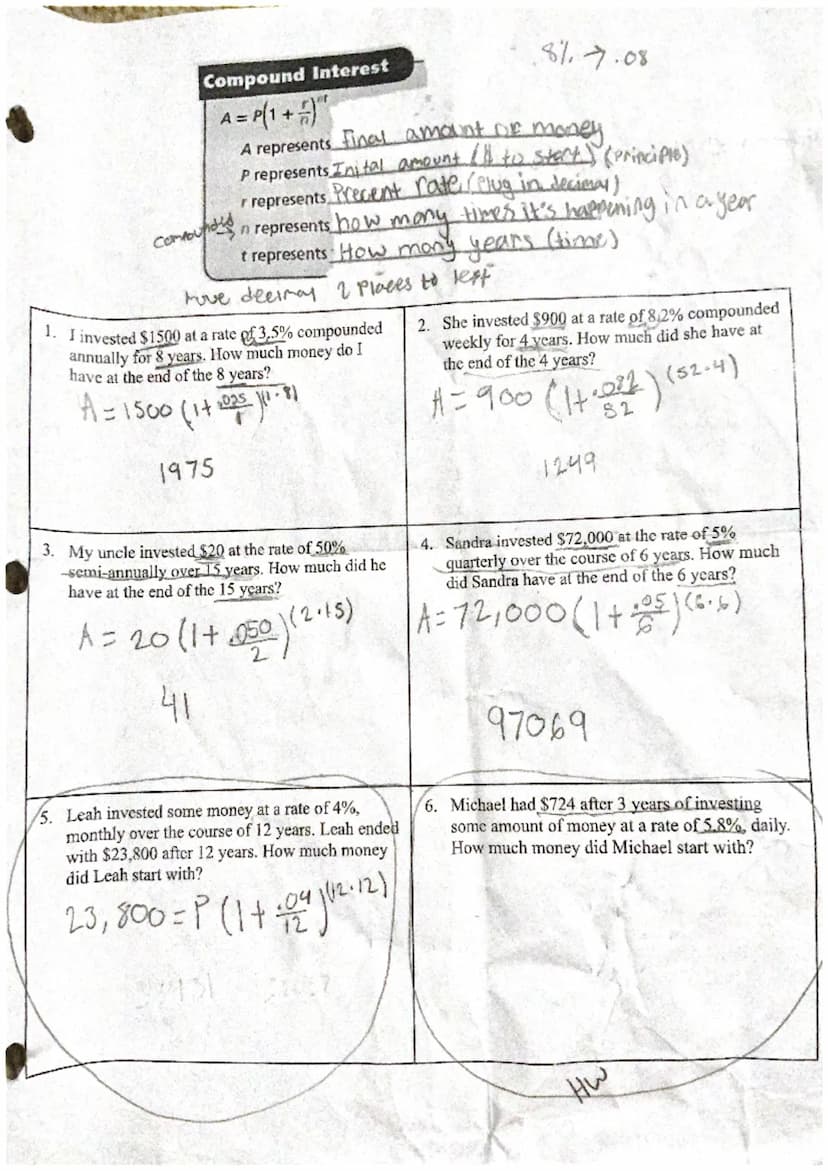 8% → .08
Compound Interest
A = P(1 + r/n)^nt
A represents Final amount of money
P represents Inital amount ($ to start) (principle)
r represents Precent rate (plug in decimal)
compounds → n represents how many times it's happening in a year
t represents How many years (time)
move decimal 2 places to left
1. I invested $1500 at a rate of 3.5% compounded
annually for 8 years. How much money do I
have at the end of the 8 years?
A = 1500 (1 + .035/1)^(1·8)
1975
2. She invested $900 at a rate of 8.2% compounded
weekly for 4 years. How much did she have at
the end of the 4 years?
A = 900 (1 + .082/52)^(52·4)
1249
3. My uncle invested $20 at the rate of 50%
semi-annually over 15 years. How much did he
have at the end of the 15 years?
A = 20 (1 + .050/2)^(2·15)
41
4. Sandra invested $72,000 at the rate of 5%
quarterly over the course of 6 years. How much
did Sandra have at the end of the 6 years?
A = 72,000 (1 + .05/6)^(6·6)
97069
5. Leah invested some money at a rate of 4%,
monthly over the course of 12 years. Leah ended
with $23,800 after 12 years. How much money
did Leah start with?
23,800 = P (1 + .04/12)^(12·12)
6. Michael had $724 after 3 years of investing
some amount of money at a rate of 5.8%, daily.
How much money did Michael start with?
HW